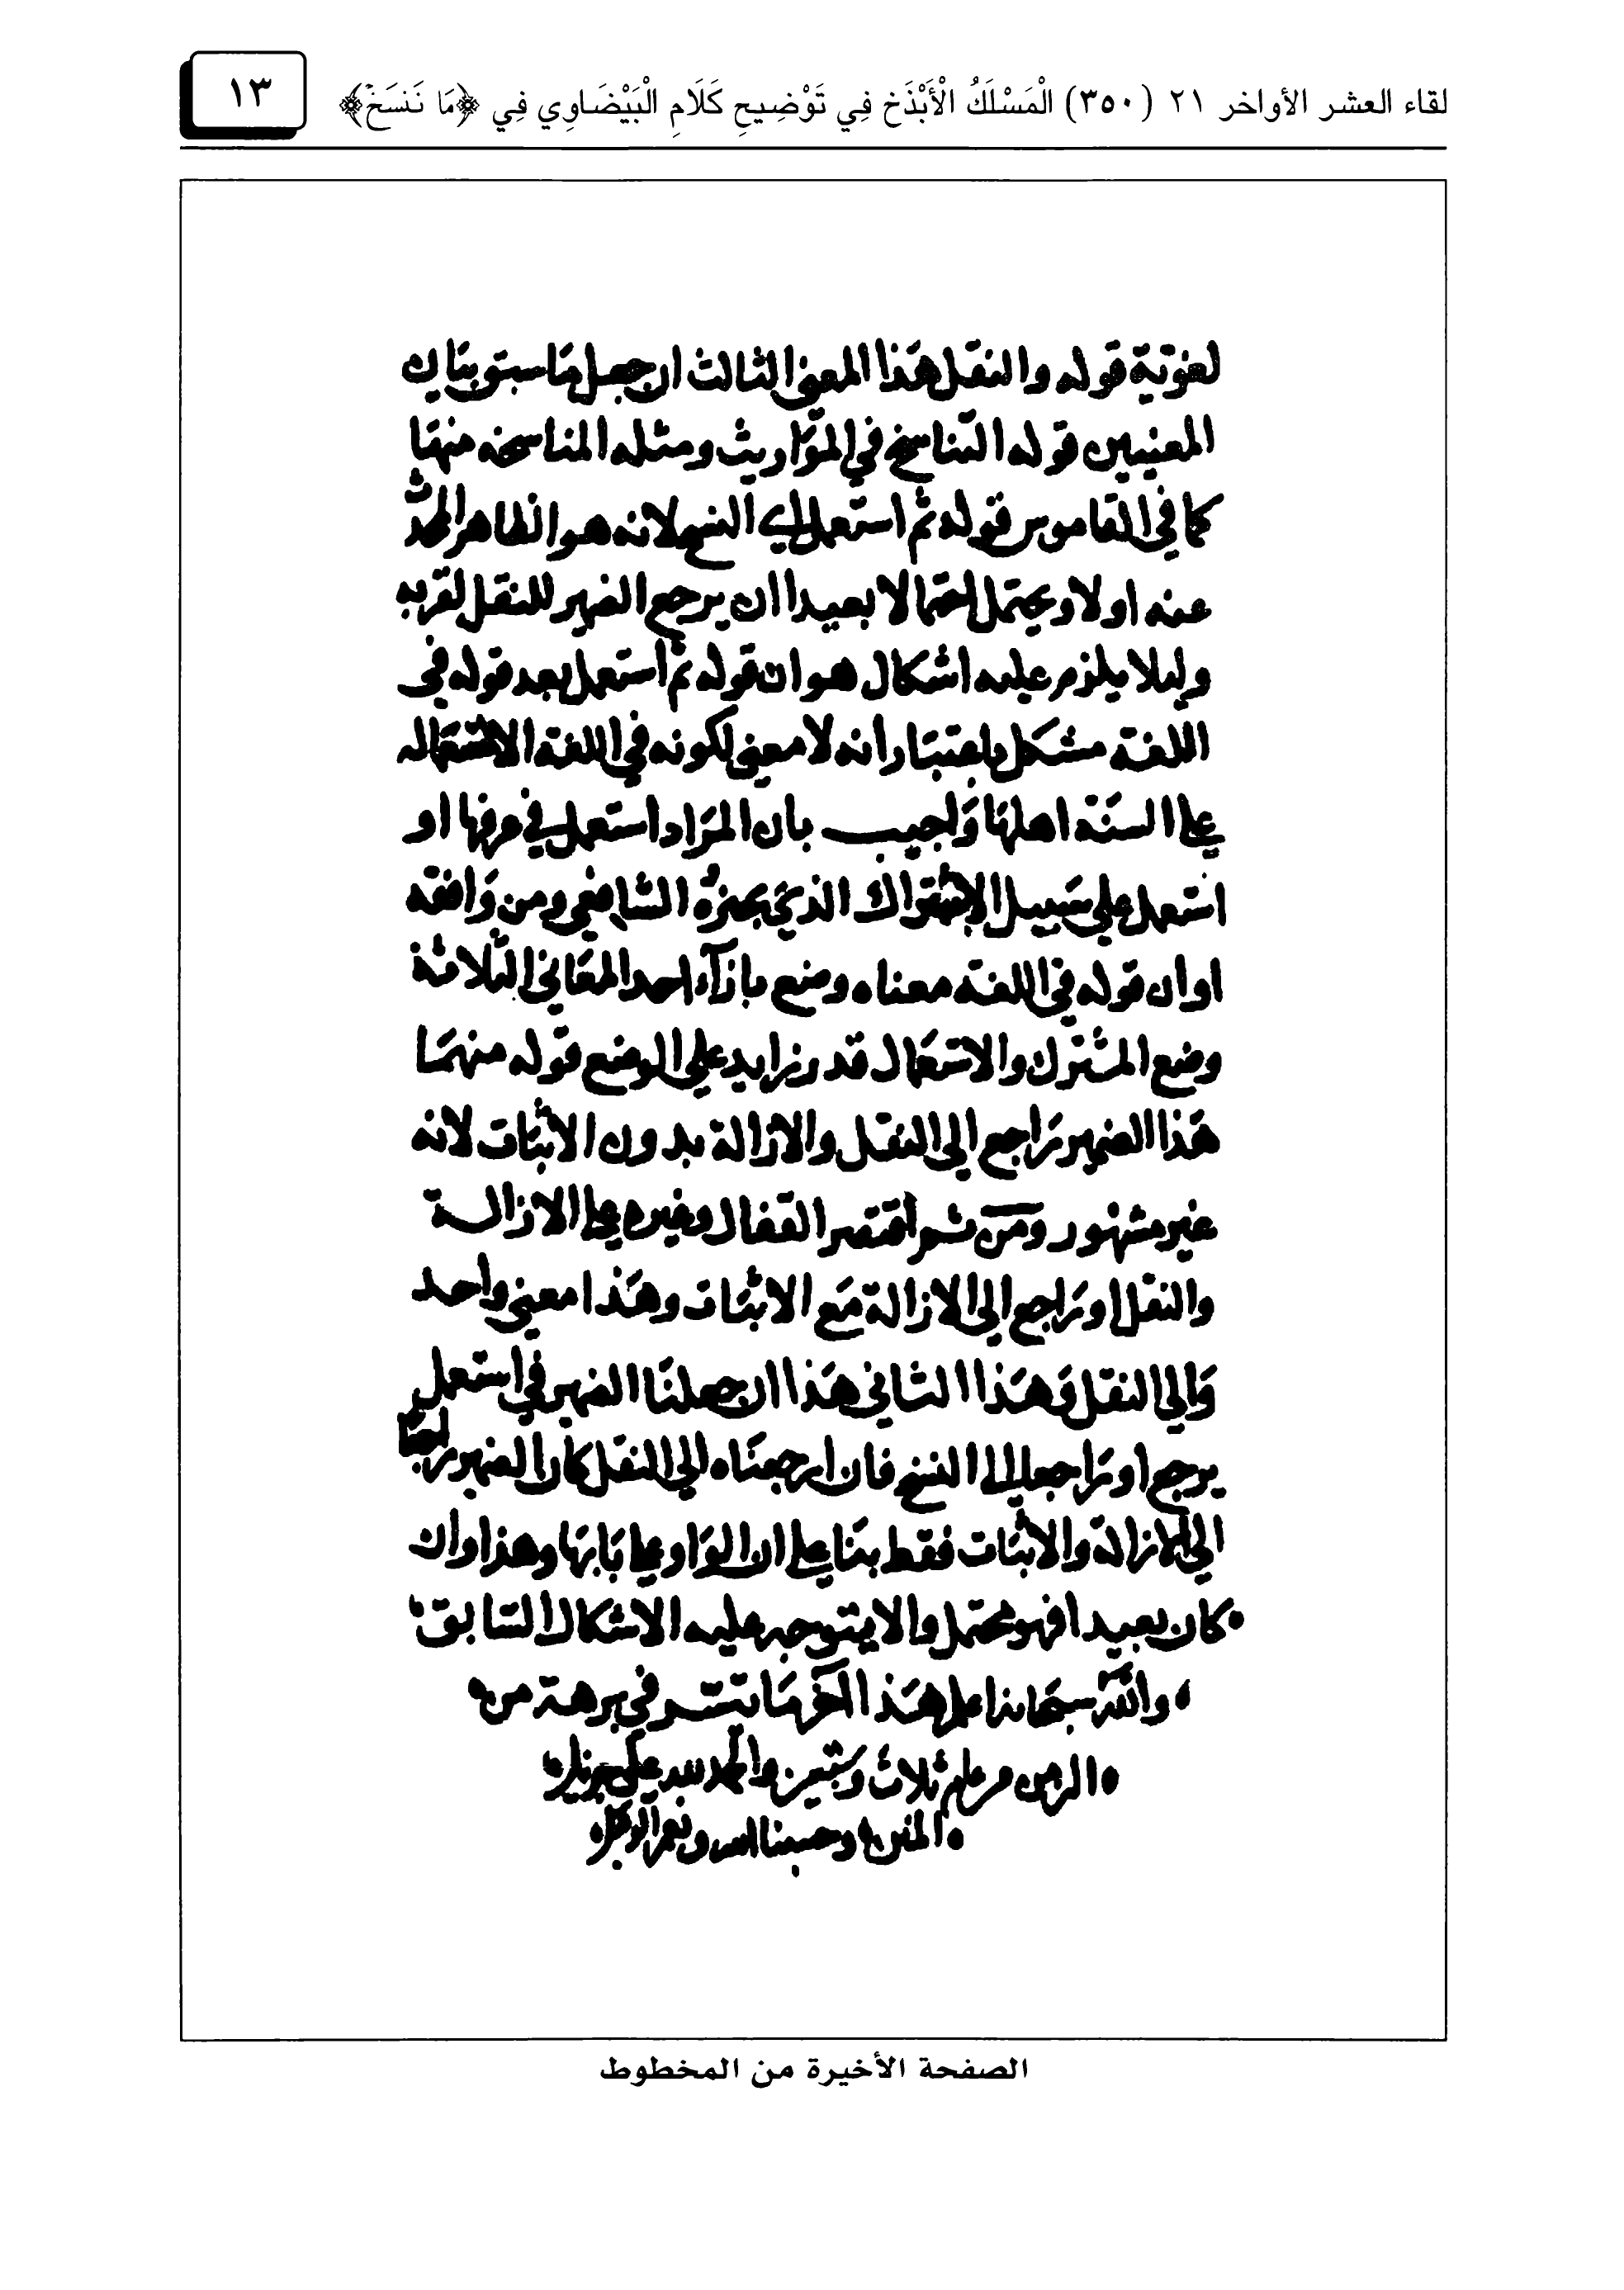 لقاء العشر الأواخر ٢١ (٣٥٠) الْمَسْلَكُ الْأَبْذَخ فِي تَوْضِيحِ كَلَامِ الْبَيْضَاوِي فِي ﴿مَا نَنسَخْ﴾
١٣
قوله والنقل هذا المعنى الثالث ان جعل ما سبق بيان
المعنيين قوله التناسخ في المواريث ومثله المناسخه منهما
كما في القاموس قوله ثم استعمل اي النسخ لانه هو الظاهر المحدث
عنه اولا ويحتمل احتمالا بعيدا ان يرجع الضمير للنقل لقربه
وليلا يلزم عليه اشكال هو ان قوله ثم استعمل بعد قوله في
اللغة مشكل باعتبار انه لا معنى لكونه في اللغة الا استعماله
على السنة اهلها وَاجيب بان المراد استعمل في عرفها او
استعمل على سبيل الاشتراك الذي يجيزه الشافعي ومن وَافقه
او ان قوله في اللغة معناه وضع بازآء احد المعاني الثلاثة
وضع المشترك والاستعمال قدر زايد على الوضع قوله منهما
هَذا الضمير راجع الى النقل والازالة بدون الاثبات لانه
غير مشهور ومن ثم اقتصر القفال وغيره على الازالة
والنقل او راجع الى الازالة مع الاثبات وهَذا معنى واحد
وَالى النقل وَهذا الثاني هَذا ان جعلنا الضمير في استعمل
يرجع او راجعا الى النسخ فان ارجعناه الى النقل كان الضمير راجعا
الى الازالة والاثبات فقط بنا على ان الواو على بابها وهذا وان
كان بعيدا فهو محتمل والا يتوجه عليه الاشكال السابق
والله سبحانه اعلم هَذا آخر مَا تيسر في برهة من
الزمن من عام ثلاث وستين والحمد لله على جزيل
المنن وحسبنا الله ونعم الوكيل
الصفحة الأخيرة من المخطوط